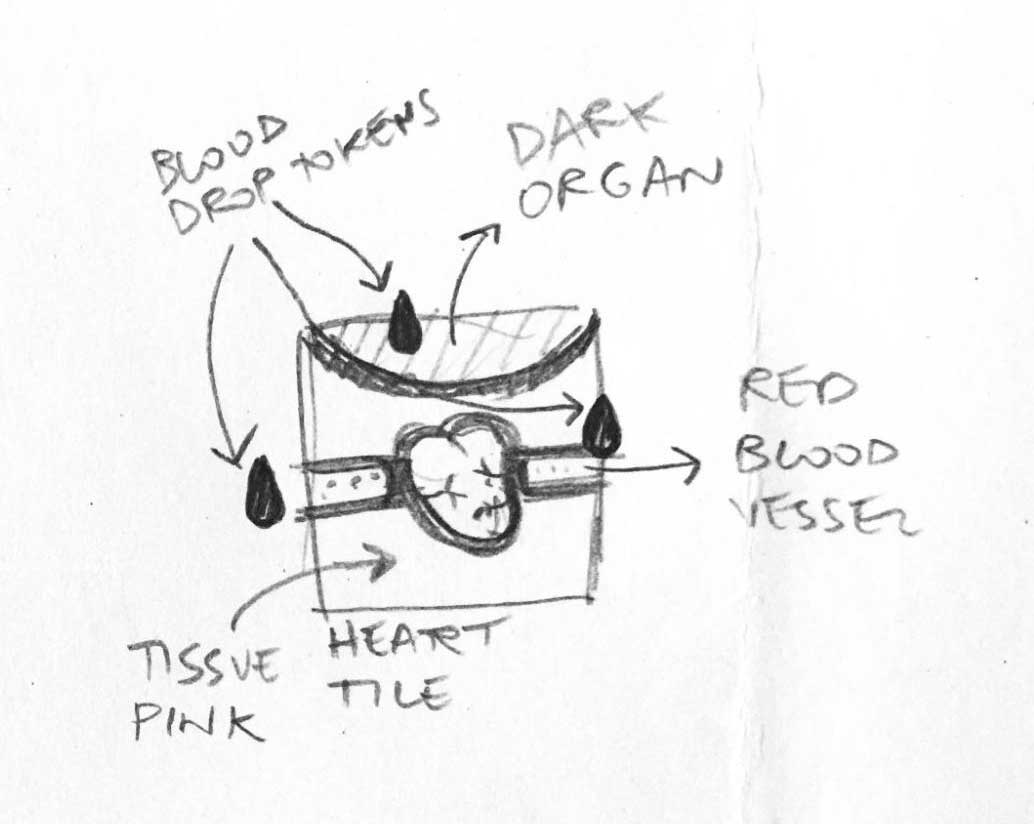 BLOOD
DROP TOKENS
DARK
ORGAN
RED
BLOOD
VESSEL
TISSUE
PINK
HEART
TILE